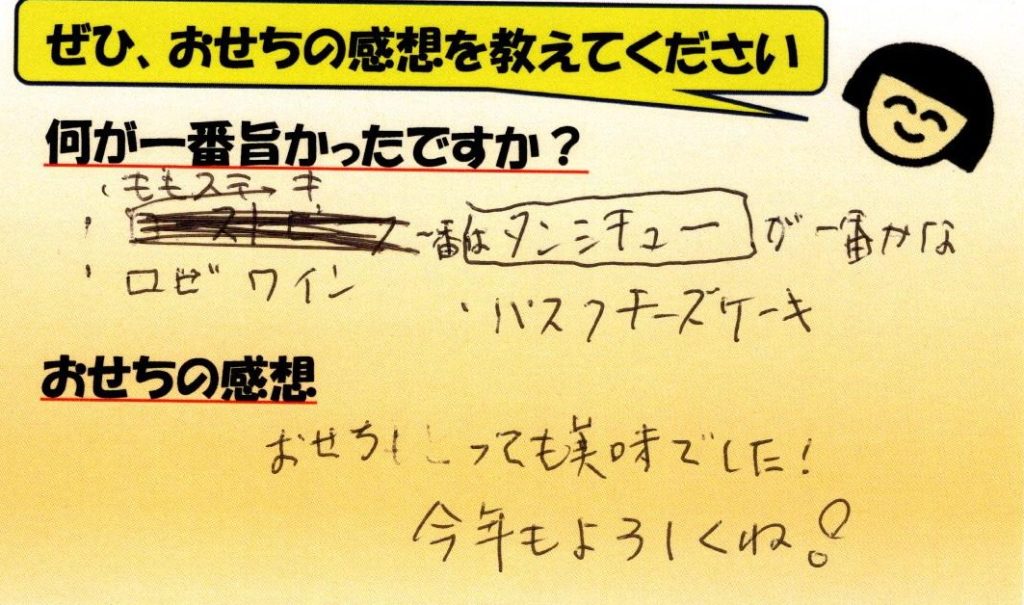 ぜひ、おせちの感想を教えてください
何が一番旨かったですか？
・ももステーキ
・ 一番は タンシチュー が一番かな
・ロゼワイン
・バスクチーズケーキ
おせちの感想
おせち とっても美味でした！
今年もよろしくね！